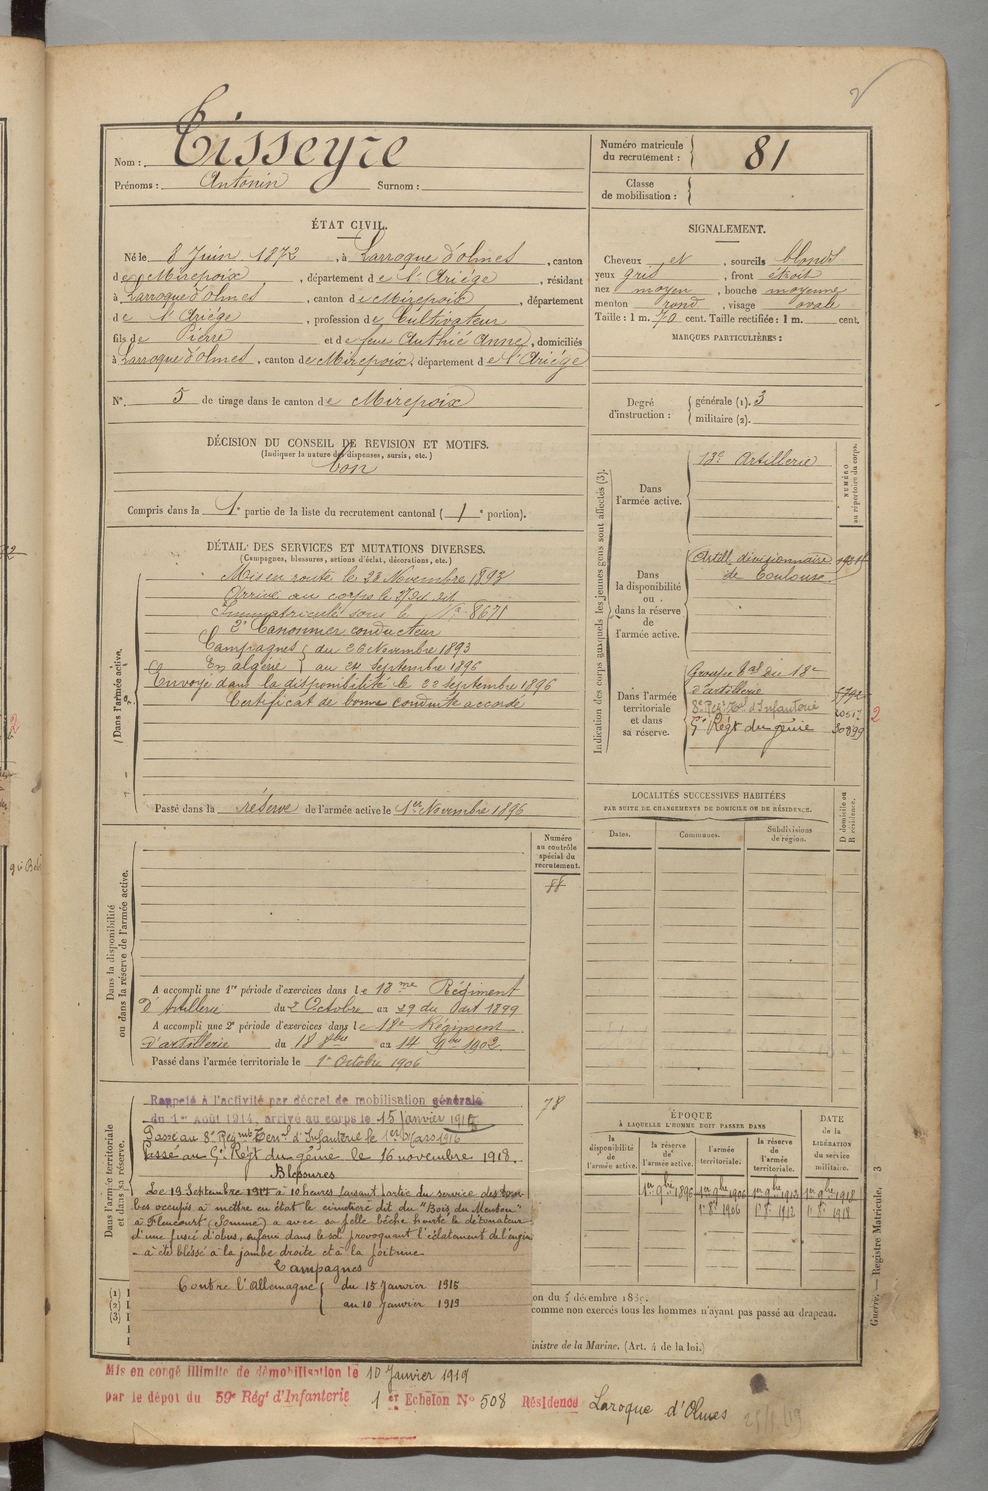 Nom : Tisseyre
Prénoms : Antonin Surnom :
Numéro matricule du recrutement : 81
Classe de mobilisation :
ÉTAT CIVIL.
Né le 8 Juin 1872, à Larroque d'olmes, canton
de Mirepoix, département de l'Ariége, résidant
à Larroque d'olmes, canton de Mirepoix, département
de l'Ariége, profession de Cultivateur
fils de Pierre et de feue Authié Anne, domiciliés
à Larroque d'olmes, canton de Mirepoix, département de l'Ariége
No. 5 de tirage dans le canton de Mirepoix
SIGNALEMENT.
Cheveux et, sourcils blonds
yeux gris, front étroit
nez moyen, bouche moyenne
menton rond, visage ovale
Taille : 1 m. 70 cent. Taille rectifiée : 1 m. cent.
MARQUES PARTICULIÈRES :
Degré d'instruction : générale (1). 3
militaire (2).
DÉCISION DU CONSEIL DE REVISION ET MOTIFS.
(Indiquer la nature des dispenses, sursis, etc.)
bon
Compris dans la 1e partie de la liste du recrutement cantonal (1e portion).
DÉTAIL DES SERVICES ET MUTATIONS DIVERSES.
(Campagnes, blessures, actions d'éclat, décorations, etc.)
Dans l'armée active.
Mis en route le 23 Novembre 1893
Arrivé au corps le
Immatriculé sous le No 8671
2e Canonnier conducteur
Campagnes du 26 Novembre 1893
En algérie au 24 septembre 1896
Envoyé dans la disponibilité le 22 septembre 1896
Certificat de bonne conduite accordé
Passé dans la réserve de l'armée active le 1er Novembre 1896
Indication des corps auxquels les jeunes gens sont affectés (3).
NUMÉRO au répertoire du corps.
Dans l'armée active. 13e Artillerie
Dans la disponibilité ou dans la réserve de l'armée active.
Artill. divisionnaire
de Toulouse
Dans l'armée territoriale et dans sa réserve.
Groupe Tal du 18e
d'artillerie 5792
8e Regt Tal d'Infanterie 20517
5e Régt du génie 30899
LOCALITÉS SUCCESSIVES HABITÉES
PAR SUITE DE CHANGEMENTS DE DOMICILE OU DE RÉSIDENCE.
Dates. Communes. Subdivisions de région.
D domicile ou R résidence.
Dans la disponibilité ou dans la réserve de l'armée active.
Numéro au contrôle spécial du recrutement.
88
A accompli une 1re période d'exercices dans le 18me Régiment
D'Artillerie du 2 Octobre au 29 du dit 1899
A accompli une 2e période d'exercices dans le 18e Régiment
d'artillerie du 18 8bre au 14 9bre 1902
Passé dans l'armée territoriale le 1er Octobre 1906
Dans l'armée territoriale et dans sa réserve.
78
Rappelé à l'activité par décret de mobilisation générale
du 1er Août 1914, arrivé au corps le 15 Janvier 1915
Passé au 8e Régmt Terral d'Infanterie le 1er Mars 1916
Passé au 5e Régt du génie le 16 novembre 1918.
Blessures
Le 19 Septembre 1917 à 10 heures faisant partie du service des tom-
bes occupés à mettre en état le cimetière dit du "Bois du Menton"
à Flaucourt (Somme) a avec sa pelle bêche heurté le détonateur
d'une fusée d'obus, enfoui dans le sol provoquant l'éclatement de l'engin
- a été blessé à la jambe droite et à la poitrine
Campagnes
Contre l'Allemagne du 15 Janvier 1915
au 10 Janvier 1919
ÉPOQUE
À LAQUELLE L'HOMME DOIT PASSER DANS
la disponibilité de l'armée active. la réserve de l'armée active. l'armée territoriale. la réserve de l'armée territoriale.
DATE de la LIBÉRATION du service militaire.
1er 9bre 1896 1er 9bre 1906 1er 9bre 1912 1er 9bre 1918
1er 8e 1906 1er 8e 1912 1er 8e 1918
comme non exercés tous les hommes n'ayant pas passé au drapeau.
inistre de la Marine. (Art. 4 de la loi.)
Guerre. — Registre Matricule. 3
Mis en congé illimité de démobilisation le 10 Janvier 1919
par le dépot du 59e Régt d'Infanterie 1er Echelon No 508 Résidence Laroque d'Olmes